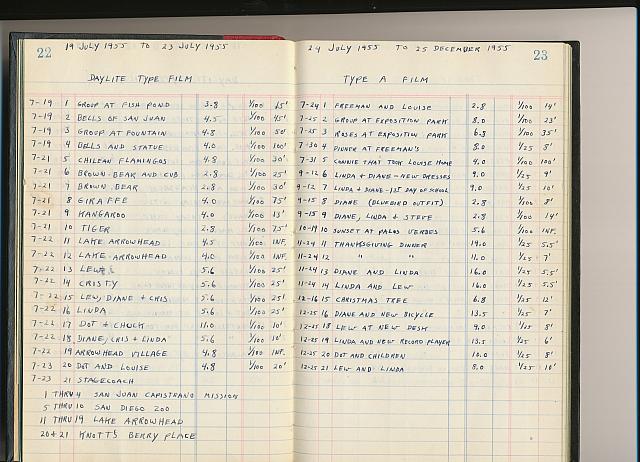 22
19 JULY 1955 TO 23 JULY 1955
DAYLITE TYPE FILM
7-19 1 GROUP AT FISH POND 3.8 1/100 15'
7-19 2 BELLS OF SAN JUAN 4.5 1/100 45'
7-19 3 GROUP AT FOUNTAIN 4.8 1/100 50'
7-19 4 BELLS AND STATUE 4.0 1/100 100'
7-21 5 CHILEAN FLAMINGOS 4.8 1/100 30'
7-21 6 BROWN BEAR AND CUB 2.8 1/100 25'
7-21 7 BROWN BEAR 2.8 1/100 30'
7-21 8 GIRAFFE 4.0 1/100 75'
7-21 9 KANGAROO 4.0 1/100 15'
7-21 10 TIGER 2.8 1/100 75'
7-22 11 LAKE ARROWHEAD 4.5 1/100 INF.
7-22 12 LAKE ARROWHEAD 4.0 1/100 INF.
7-22 13 LEW 5.6 1/100 25'
7-22 14 CRISTY 5.6 1/100 25'
7-22 15 LEW, DIANE + CRIS 5.6 1/100 25'
7-22 16 LINDA 5.6 1/100 25'
7-22 17 DOT + CHUCK 11.0 1/100 10'
7-22 18 DIANE, CRIS + LINDA 5.6 1/100 10'
7-22 19 ARROWHEAD VILLAGE 4.8 1/100 INF.
7-23 20 DOT AND LOUISE 4.8 1/100 20'
7-23 21 STAGECOACH
1 THRU 4 SAN JUAN CAPISTRANO MISSION
5 THRU 10 SAN DIEGO ZOO
11 THRU 19 LAKE ARROWHEAD
20+21 KNOTT'S BERRY PLACE
24 JULY 1955 TO 25 DECEMBER 1955
23
TYPE A FILM
7-24 1 FREEMAN AND LOUISE 2.8 1/100 14'
7-25 2 GROUP AT EXPOSITION PARK 8.0 1/100 23'
7-25 3 ROSES AT EXPOSITION PARK 6.8 1/100 35'
7-30 4 DINNER AT FREEMAN'S 8.0 1/25 8'
7-31 5 CONNIE THAT TOOK LOUISE HOME 4.0 1/100 100'
9-12 6 LINDA + DIANE - NEW DRESSES 9.0 1/25 9'
9-12 7 LINDA + DIANE - 1ST DAY OF SCHOOL 9.0 1/25 10'
9-15 8 DIANE (BLUEBIRD OUTFIT) 2.8 1/100 8'
9-15 9 DIANE, LINDA + STEVE 2.8 1/100 14'
10-14 10 SUNSET AT PALOS VERDES 5.6 1/100 INF.
11-24 11 THANKSGIVING DINNER 14.0 1/25 5.5'
11-24 12 " " 11.0 1/25 7'
11-24 13 DIANE AND LINDA 16.0 1/25 5.5'
11-24 14 LINDA AND LEW 16.0 1/25 5.5'
12-16 15 CHRISTMAS TREE 6.8 1/25 12'
12-25 16 DIANE AND NEW BICYCLE 13.5 1/25 7'
12-25 18 LEW AT NEW DESK 9.0 1/25 8'
12-25 19 LINDA AND NEW RECORD PLAYER 13.5 1/25 6'
12-25 20 DOT AND CHILDREN 10.0 1/25 8'
12-25 21 LEW AND LINDA 8.0 1/25 10'